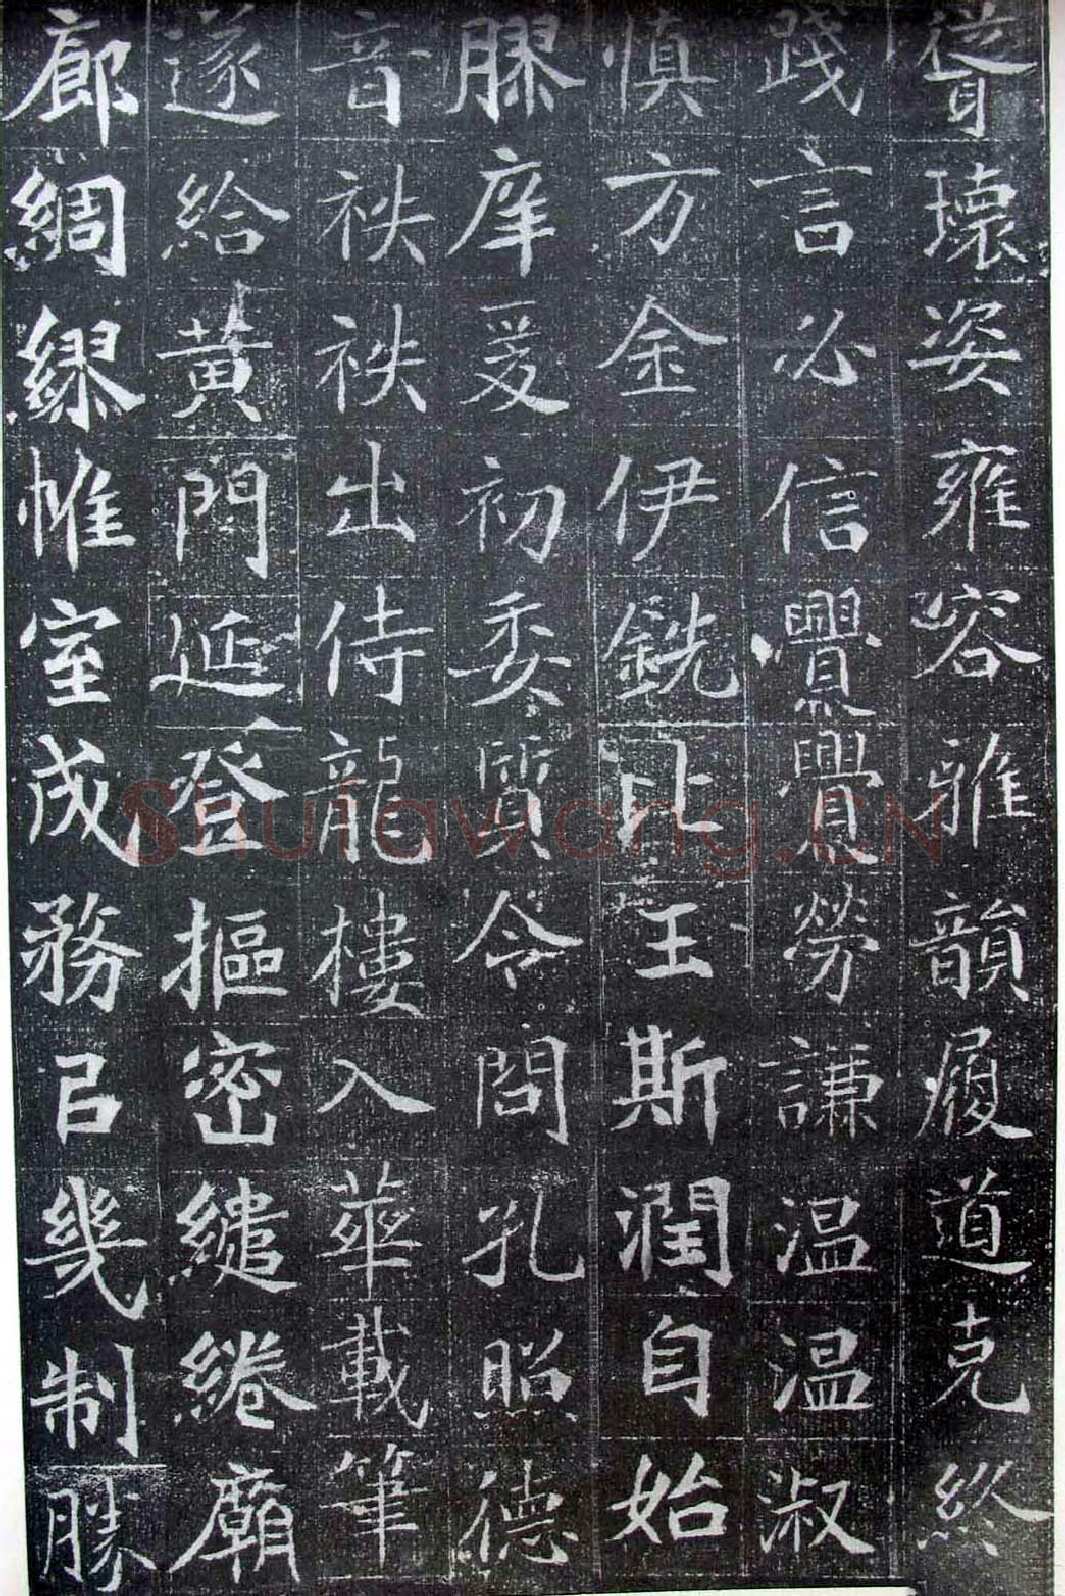 瓌姿雍容雅韻履道克
踐言必信亹亹勞謙温温淑
慎方金伊銑比玉斯潤自始
膠庠爰初委質令問孔照德
音秩秩出侍龍樓入華載筆
遂給黄門延登樞密繾綣廟
廊綢繆帷室成務㠯幾制勝
shufawang.cn